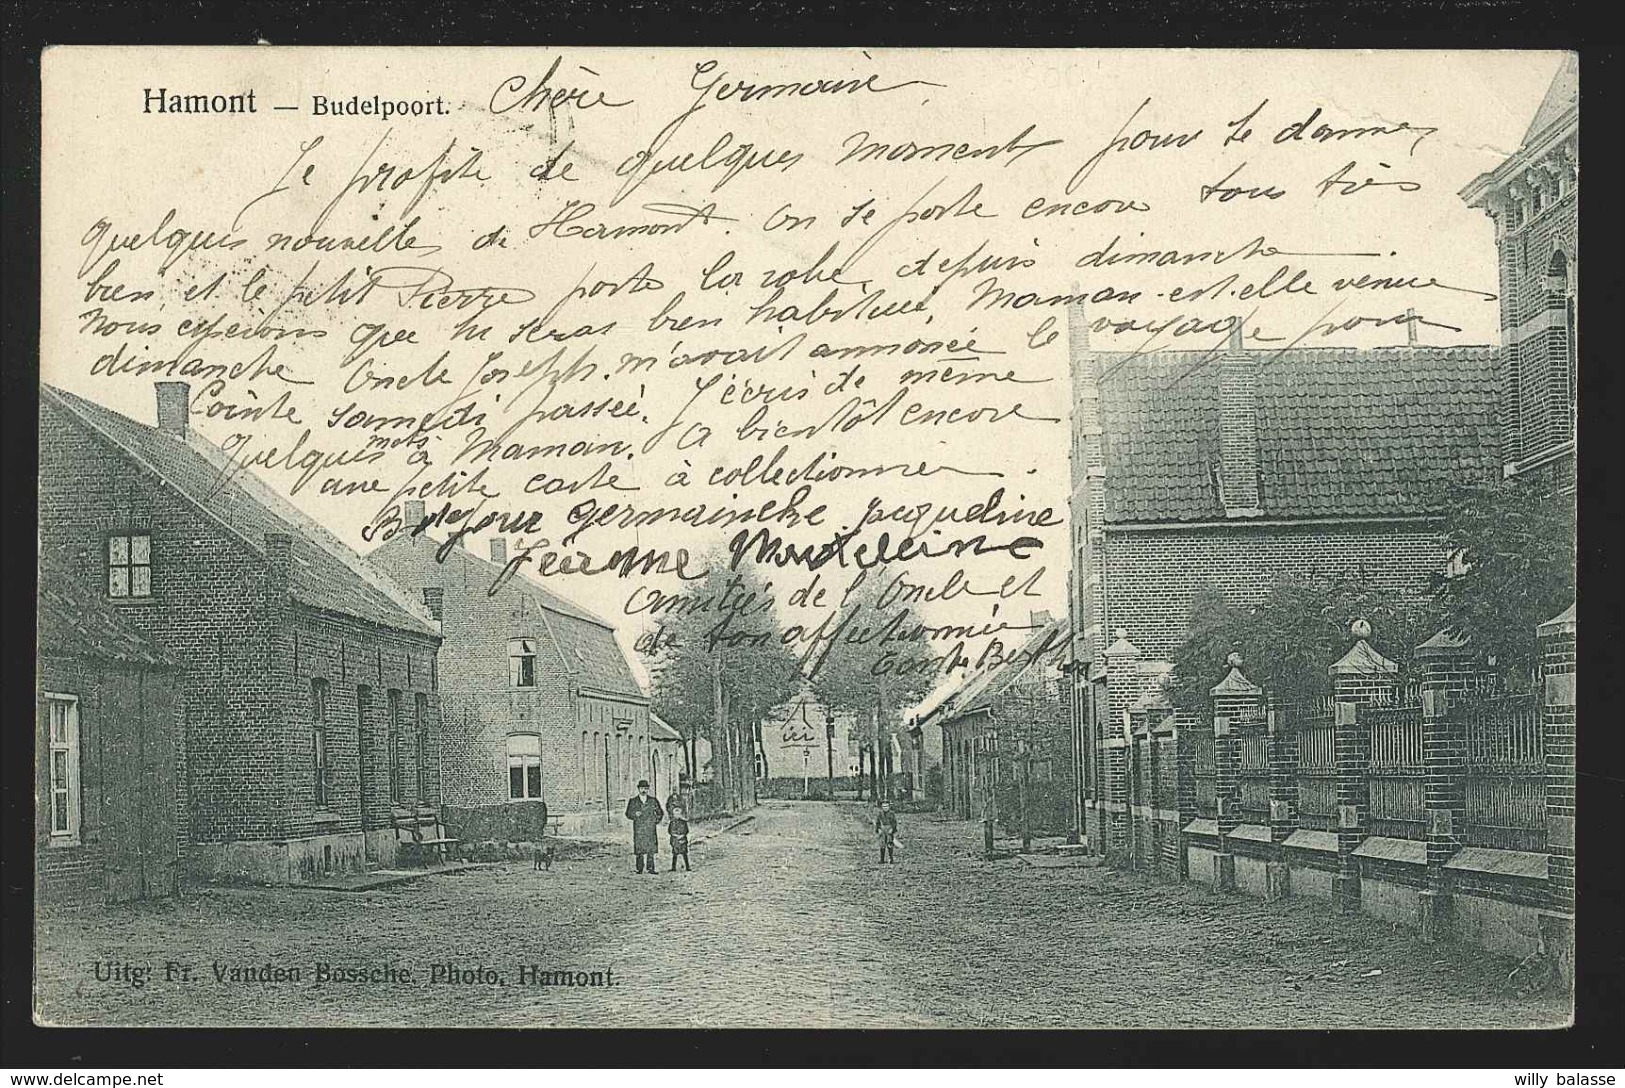 Hamont — Budelpoort.
Chère Germaine
Je profite de quelques moments pour te donner
quelques nouvelles de Hamont. On se porte encore tous très
bien et le petit Pierre porte la robe depuis dimanche
Nous espérons que tu seras bien habituée. Maman est-elle venue
dimanche Oncle Joseph m'avait annoncé le voyage pour
Cointe samedi passée. J'écris de même
quelques mots à Maman. A bientôt encore
une petite carte à collectionner.
Bonjour Germaineke Jacqueline
Jérôme Madeleine
Amitiés de l'Oncle et
de ton affectionnée
tante Bertha
ici
Uitg: Fr. Vanden Bossche, Photo, Hamont.
willy balasse